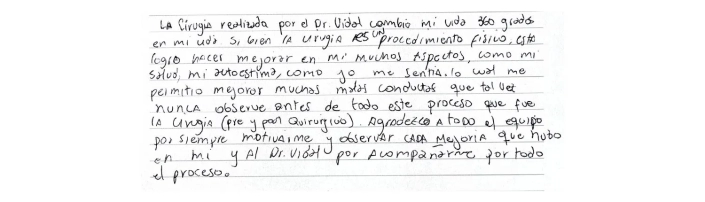 LA Cirugia realizada por el Dr. Vidal cambio mi vida 360 grados
en mi vida si bien la cirugia es UN procedimiento fisico, esta
logro hacer mejorar en mi muchos Aspectos, como mi
salud, mi autoestima, como yo me sentia. lo cual me
permitio mejorar muchas malas conductas que tal vez
nunca observe antes de todo este proceso que fue
la cirugia (pre y post Quirurgico). Agradezco A todo el equipo
por siempre motivarme y observar CADA Mejoria que hubo
en mi y Al Dr. Vidal por Acompañarme por todo
el proceso.